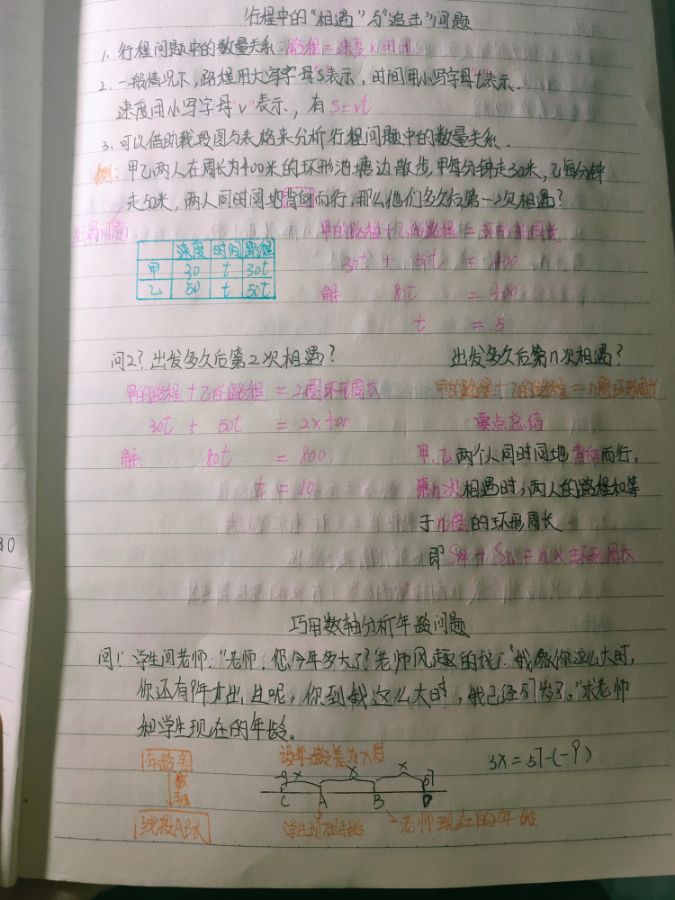 行程中的“相遇”与“追击”问题
1. 行程问题中的数量关系:路程=速度×时间
2. 一般情况下,路程用大写字母“S”表示,时间用小写字母t表示.
速度用小写字母“v”表示,有 S=vt
3. 可以借助线段图与表格来分析行程问题中的数量关系.
例:甲乙两人在周长为400米的环形池塘边散步,甲每分钟走30米,乙每分钟
走50米,两人同时同地背向而行,那么他们多久后第一次相遇?
相遇问题:
甲的路程+乙的路程=环形的周长
速度 时间 路程
甲 30 t 30t
乙 50 t 50t
30t + 50t = 400
解 80t = 400
t = 5
问2?出发多久后第2次相遇?
甲的路程+乙的路程=2圈环形周长
30t + 50t = 2×400
解 80t = 800
t = 10
出发多久后第n次相遇?
甲的路程+乙的路程=n圈环形周长
要点总结
甲、乙两个人同时同地背向而行,
第n次相遇时,两人的路程和等
于n倍的环形周长
即 S甲+S乙=n×环形周长
巧用数轴分析年龄问题
问1 学生问老师:“老师,您今年多大了?老师风趣的说:“我像你这么大时,
你还有9年才出生呢,你到我这么大时,我已经57岁了。”求老师
和学生现在的年龄。
年龄差
数轴
线段AB长
设年龄差为x岁
x x x
-9 57
C A B D
学生现在年龄
老师现在的年龄
3x=57-(-9)